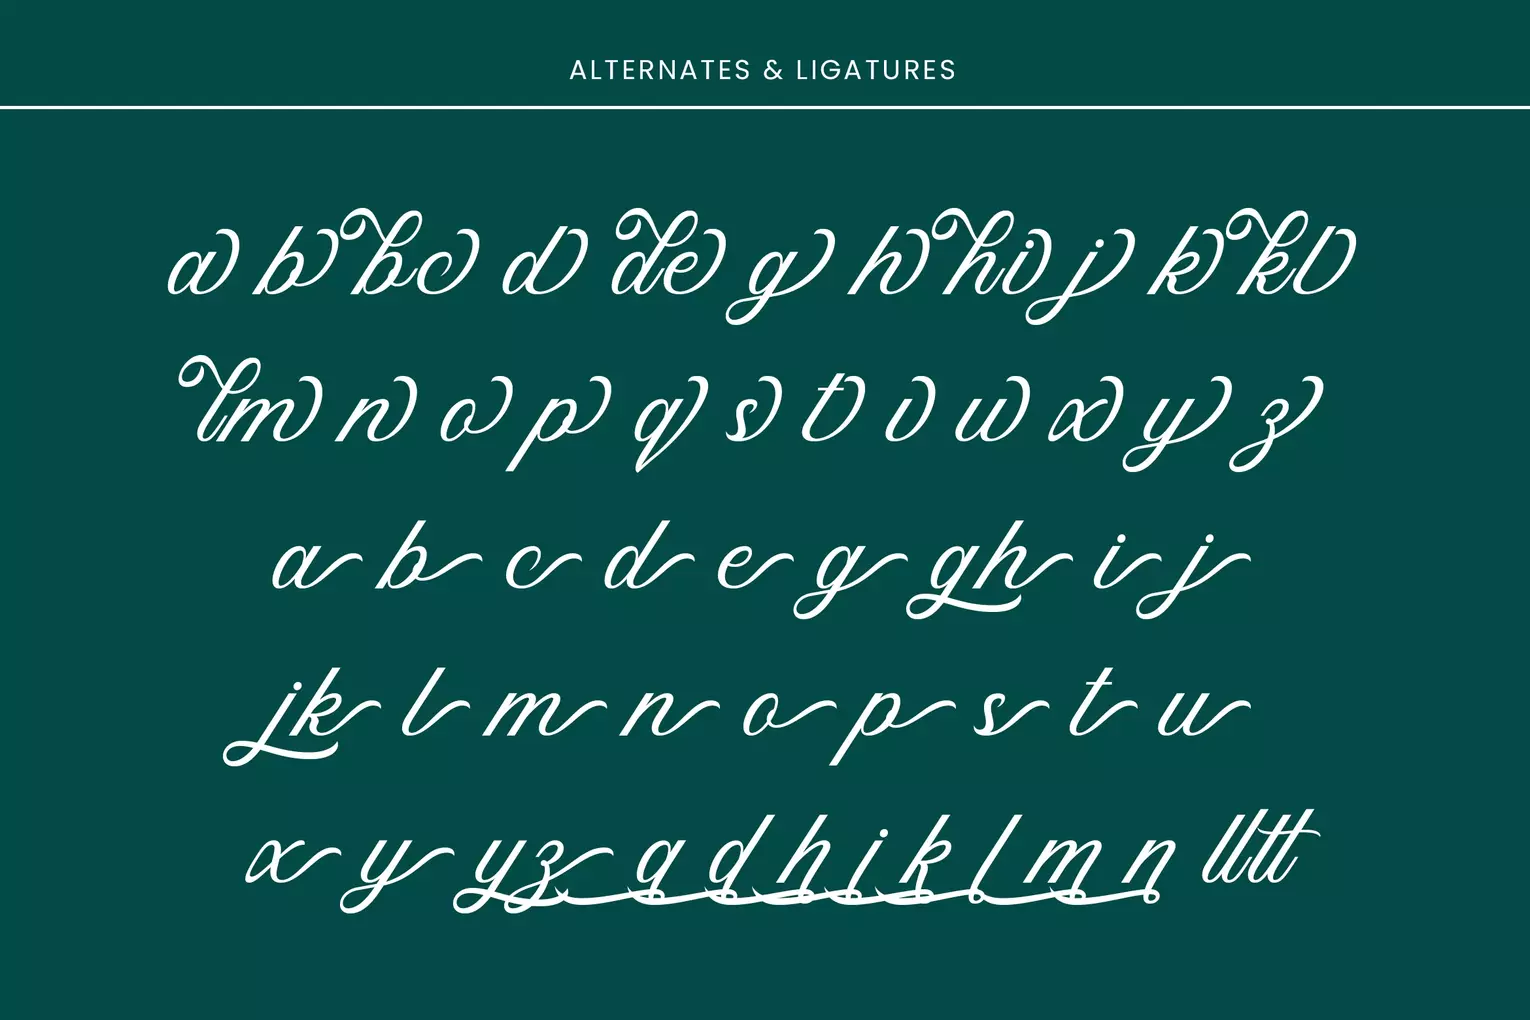 ALTERNATES & LIGATURES
a b bc d de g h hi j k kl
lm n o p q s t v w x y z
a b c d e g gh i j
jk l m n o p s t u
x y yz a d h i k l m n ll tt